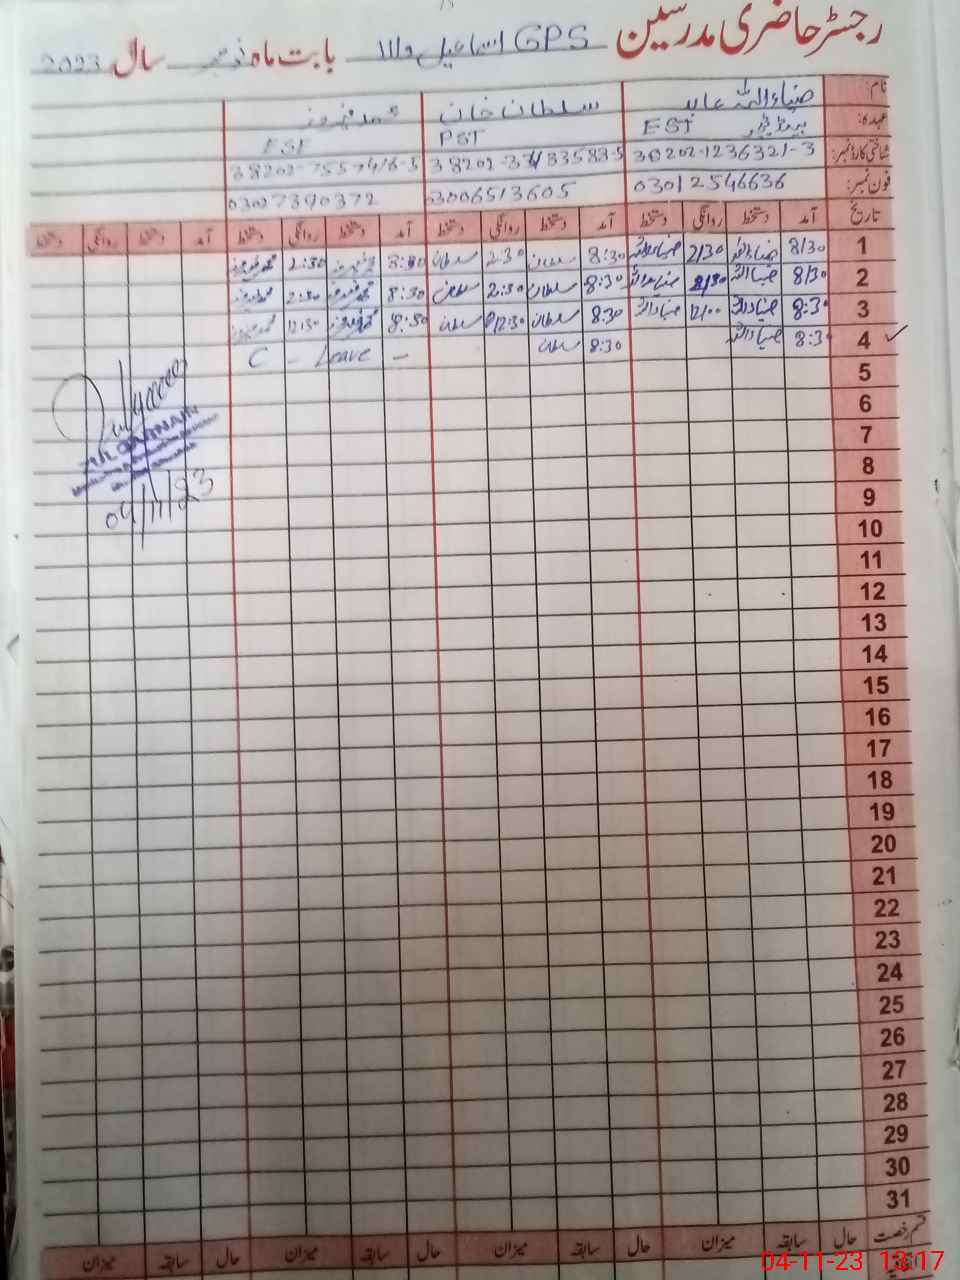 رجسٹر حاضری مدرسین GPS اسماعیل والا بابت ماہ نومبر سال 2023
نام: ضیاءاللہ عابد سلطان خان محمد فیروز
عہدہ: ہیڈ ٹیچر EST PST EST
شناختی کارڈ نمبر: 38202-1236321-3
فون نمبر: 03012546636 3006513605 03027390372
تاریخ آمد دستخط روانگی دستخط آمد دستخط روانگی دستخط آمد دستخط روانگی دستخط آمد دستخط روانگی دستخط
1 8/30 ضیاءاللہ 2/30 ضیاءاللہ 8:30 سلطان 2:30 سلطان 8:30 محمد فیروز 2:30 محمد فیروز
2 8/30 ضیاءاللہ 2/30 ضیاءاللہ 8:30 سلطان 2:30 سلطان 8:30 محمد فیروز 2:30 محمد فیروز
3 8:30 ضیاءاللہ 12/00 ضیاءاللہ 8:30 سلطان 12:30 سلطان 8:30 محمد فیروز 12:30 محمد فیروز
4 8:30 ضیاءاللہ 8:30 سلطان C - Leave -
5
6
7
ZULQARNAIN
8
9
04/11/23
10
11
12
13
14
15
16
17
18
19
20
21
22
23
24
25
26
27
28
29
30
31
قسم رخصت حال سابقہ میزان حال سابقہ میزان حال سابقہ میزان حال سابقہ میزان
04-11-23 13:17